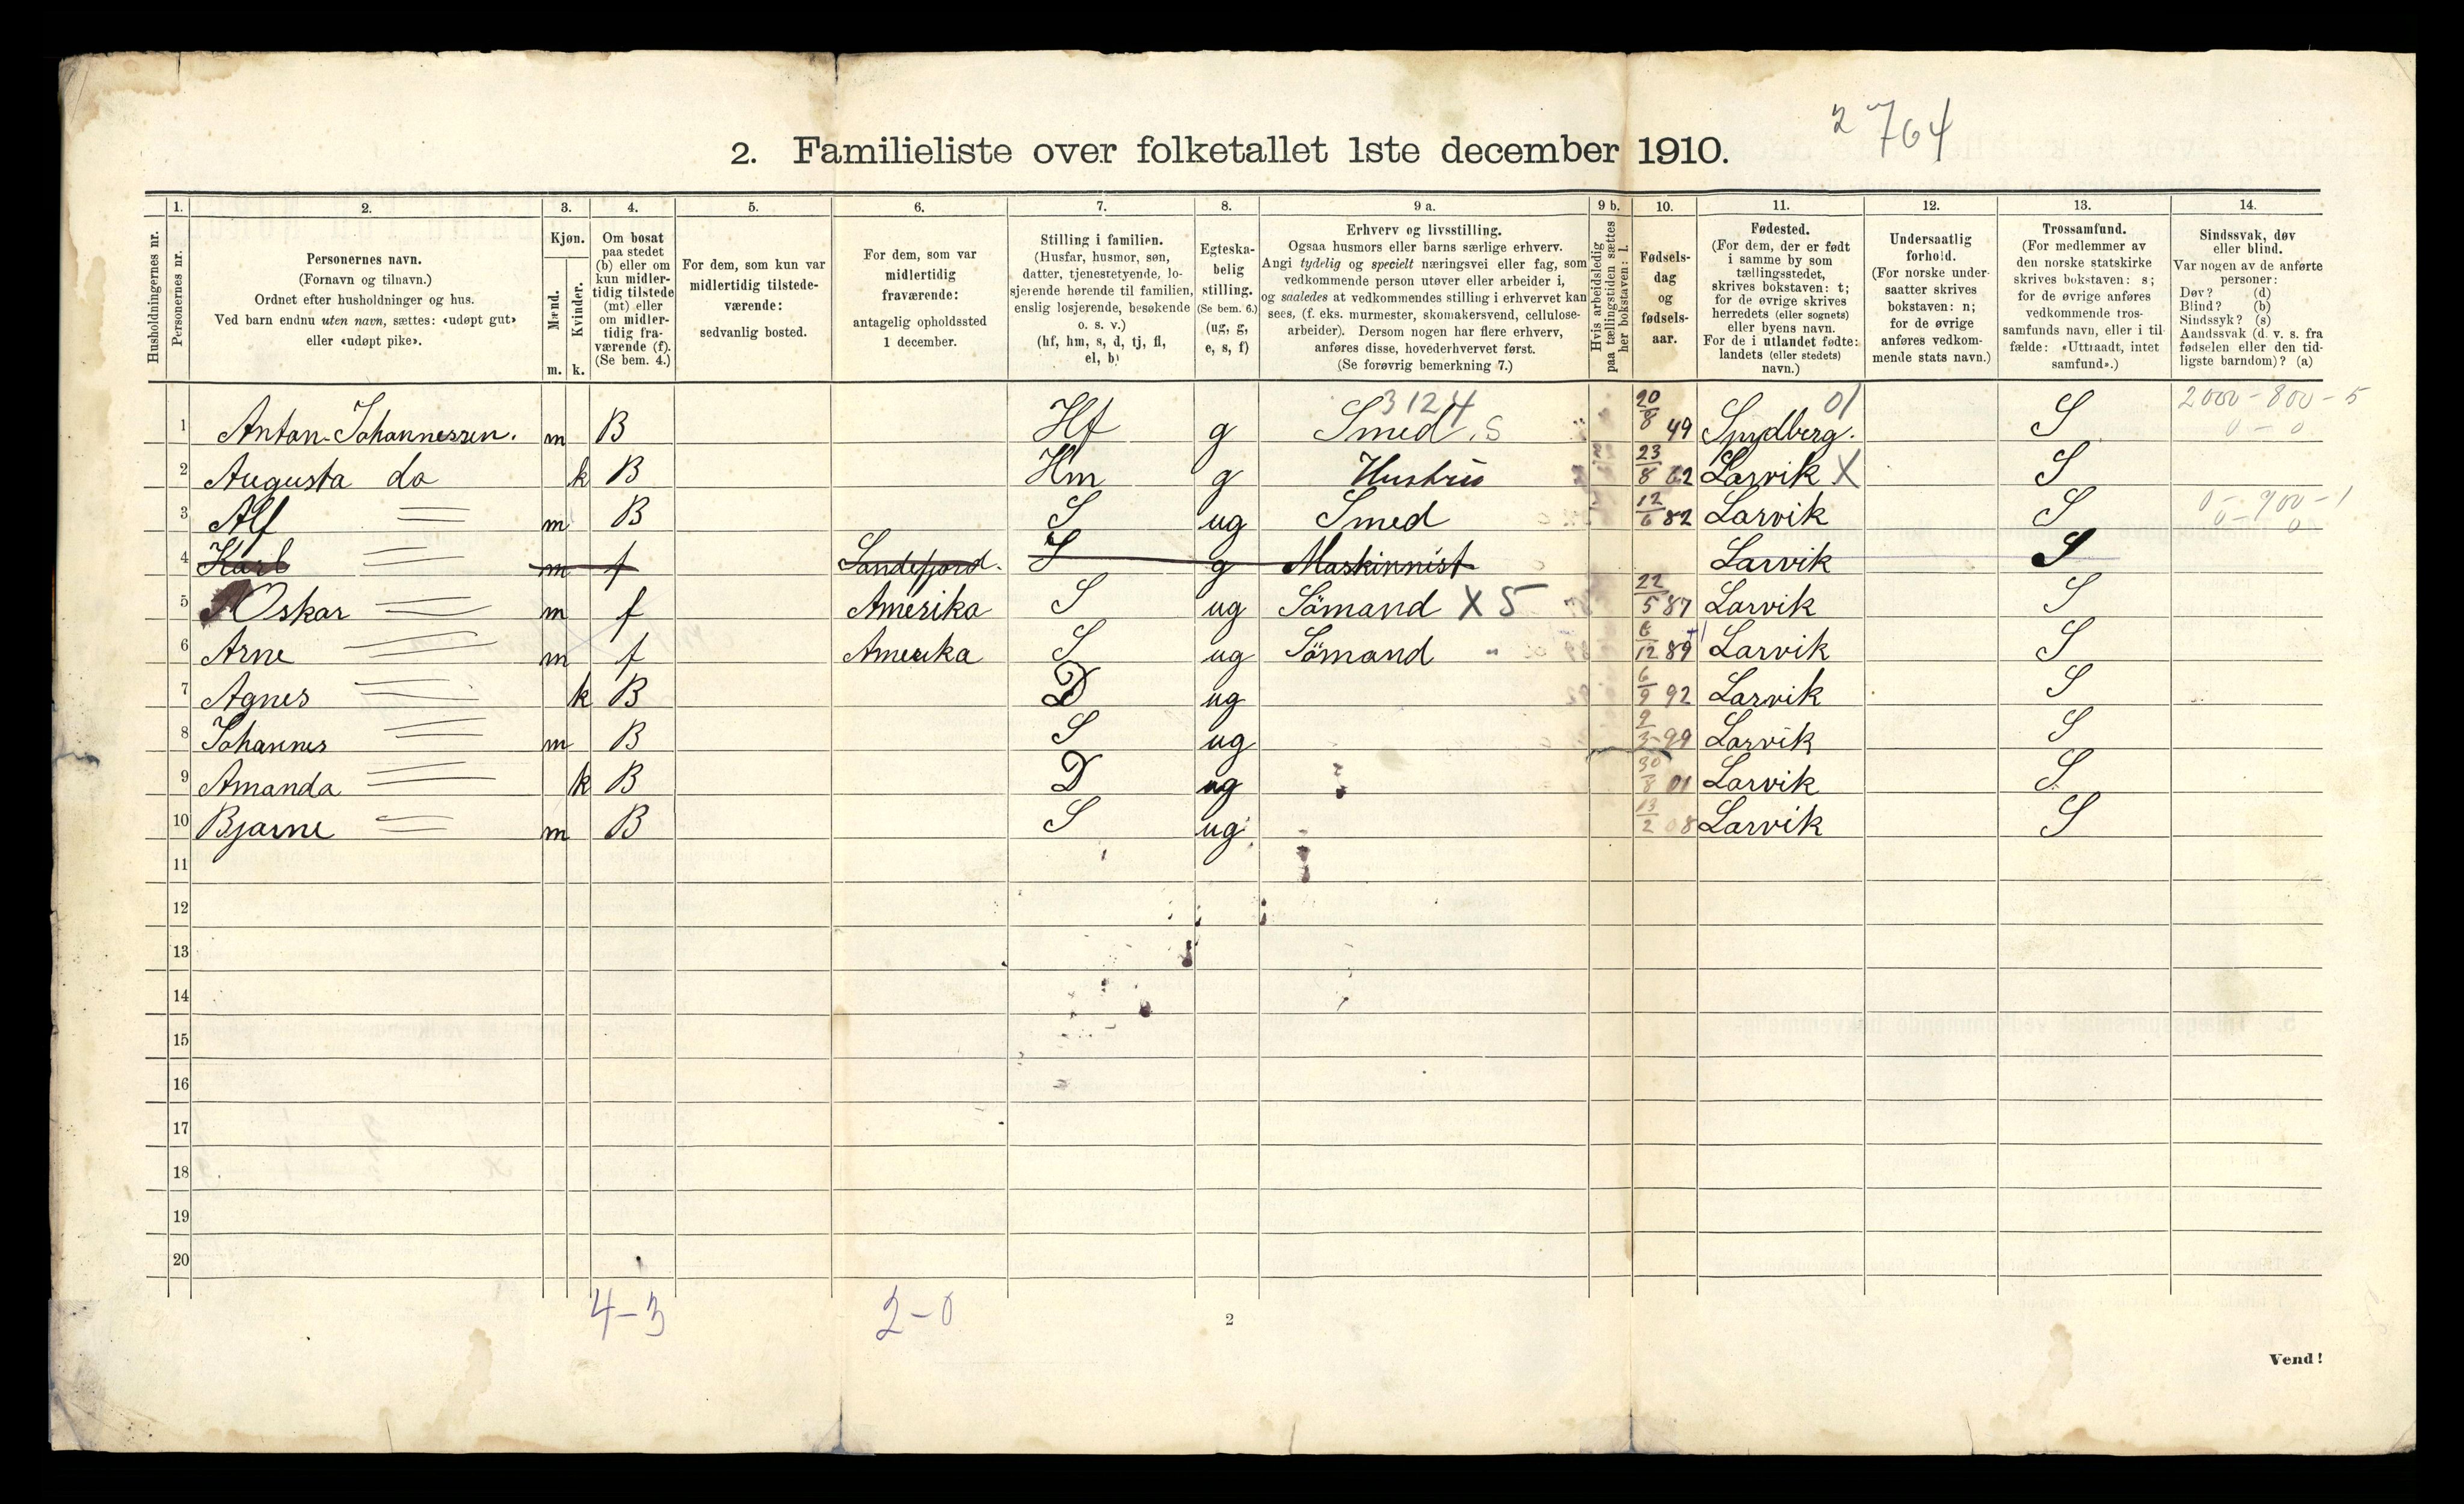 2764
2. Familieliste over folketallet 1ste december 1910.
1. 2. 3. 4. 5. 6. 7. 8. 9 a. 9 b. 10. 11. 12. 13. 14.
Husholdningernes nr.
Personernes nr.
Personernes navn.
(Fornavn og tilnavn.)
Ordnet efter husholdninger og hus.
Ved barn endnu uten navn, sættes: «udøpt gut»
eller «udøpt pike».
Kjøn.
Mænd.
Kvinder.
m. k.
Om bosat
paa stedet
(b) eller om
kun midler-
tidig tilstede
(mt) eller
om midler-
tidig fra-
værende (f).
(Se bem. 4.)
For dem, som kun var
midlertidig tilstede-
værende:
sedvanlig bosted.
For dem, som var
midlertidig
fraværende:
antagelig opholdssted
1 december.
Stilling i familien.
(Husfar, husmor, søn,
datter, tjenestetyende, lo-
sjerende hørende til familien,
enslig losjerende, besøkende
o. s. v.)
(hf, hm, s, d, tj, fl,
el, b)
Egteska-
belig
stilling.
(Se bem. 6.)
(ug, g,
e, s, f)
Erhverv og livsstilling.
Ogsaa husmors eller barns særlige erhverv.
Angi tydelig og specielt næringsvei eller fag, som
vedkommende person utøver eller arbeider i,
og saaledes at vedkommendes stilling i erhvervet kan
sees, (f. eks. murmester, skomakersvend, cellulose-
arbeider). Dersom nogen har flere erhverv,
anføres disse, hovederhvervet først.
(Se forøvrig bemerkning 7.)
Hvis arbeidsledig
paa tællingstiden sættes
her bokstaven: l.
Fødsels-
dag
og
fødsels-
aar.
Fødested.
(For dem, der er født
i samme by som
tællingsstedet,
skrives bokstaven: t;
for de øvrige skrives
herredets (eller sognets)
eller byens navn.
For de i utlandet fødte:
landets (eller stedets)
navn.)
Undersaatlig
forhold.
(For norske under-
saatter skrives
bokstaven: n;
for de øvrige
anføres vedkom-
mende stats navn.)
Trossamfund.
(For medlemmer av
den norske statskirke
skrives bokstaven: s;
for de øvrige anføres
vedkommende tros-
samfunds navn, eller i til-
fælde: «Uttraadt, intet
samfund».)
Sindssvak, døv
eller blind.
Var nogen av de anførte
personer:
Døv? (d)
Blind? (b)
Sindssyk? (s)
Aandssvak (d. v. s. fra
fødselen eller den tid-
ligste barndom)? (a)
3124 01 2000-800-5
1 Anton Johannessen. m B Hf g Smed. S 20/8 49 Spydberg. S 0-0
2 Augusta do k B Hm g Hustru 23/8 62 Larvik X S
3 Alf = m B S ug Smed 12/6 82 Larvik S 0-900-1
0-0
4 Karl = m f Sandefjord. S g Maskinnist Larvik S
5 Oskar = m f Amerika S ug Sömand X 5 22/5 87 Larvik S
6 Arne = m f Amerika S ug Sömand " 6/12 89 Larvik S
7 Agnes = k B D ug 6/9 92 Larvik S
8 Johannes = m B S ug 9/3 99 Larvik S
9 Amanda = k B D ug 30/8 01 Larvik S
10 Bjarne = m B S ug 13/2 08 Larvik S
11
12
13
14
15
16
17
18
19
20
4-3 2-0
2
Vend!